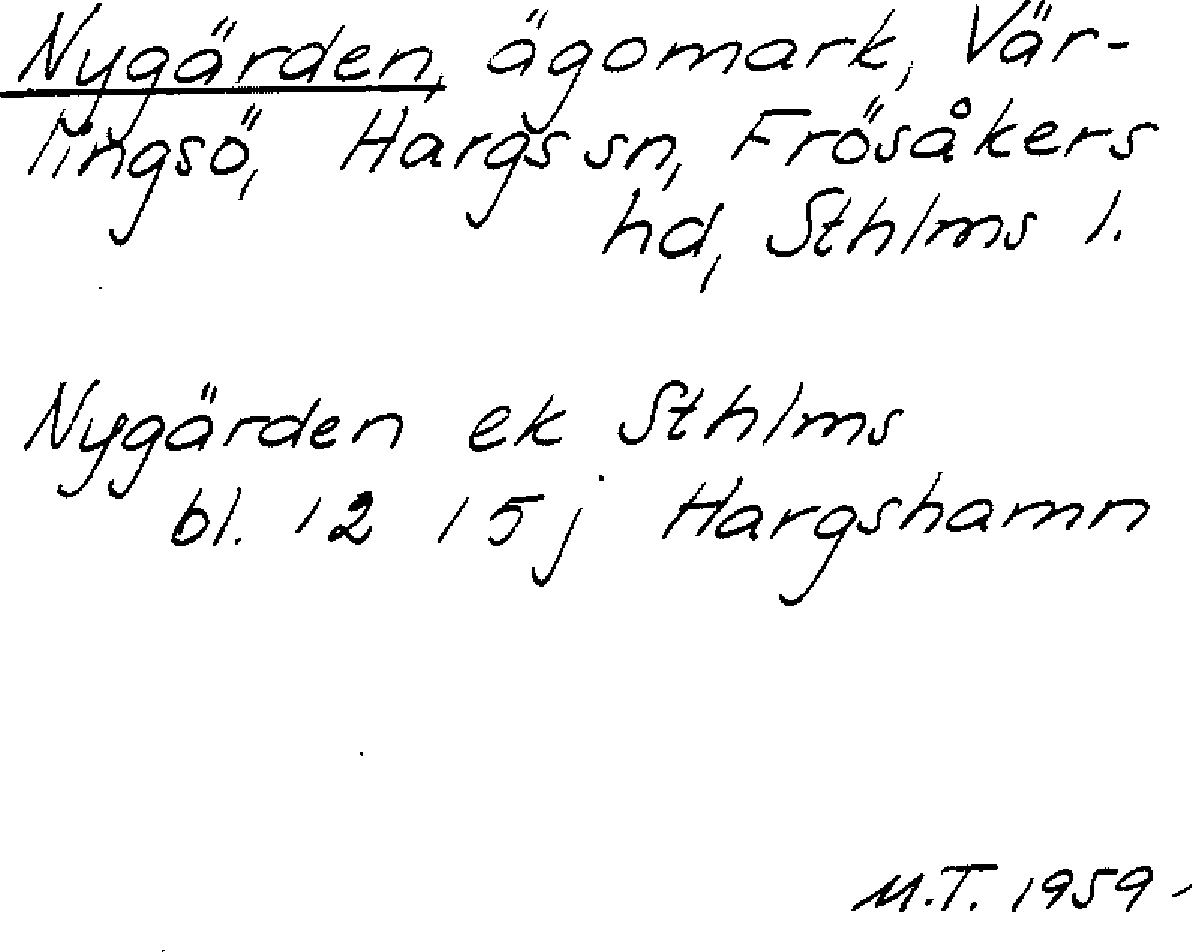 Nygärden, ägomark, Vär-
lingsö, Hargs sn, Frösåkers
hd, Sthlms l.
Nygärden ek Sthlms
bl. 12 I 5j Hargshamn
M.T. 1959